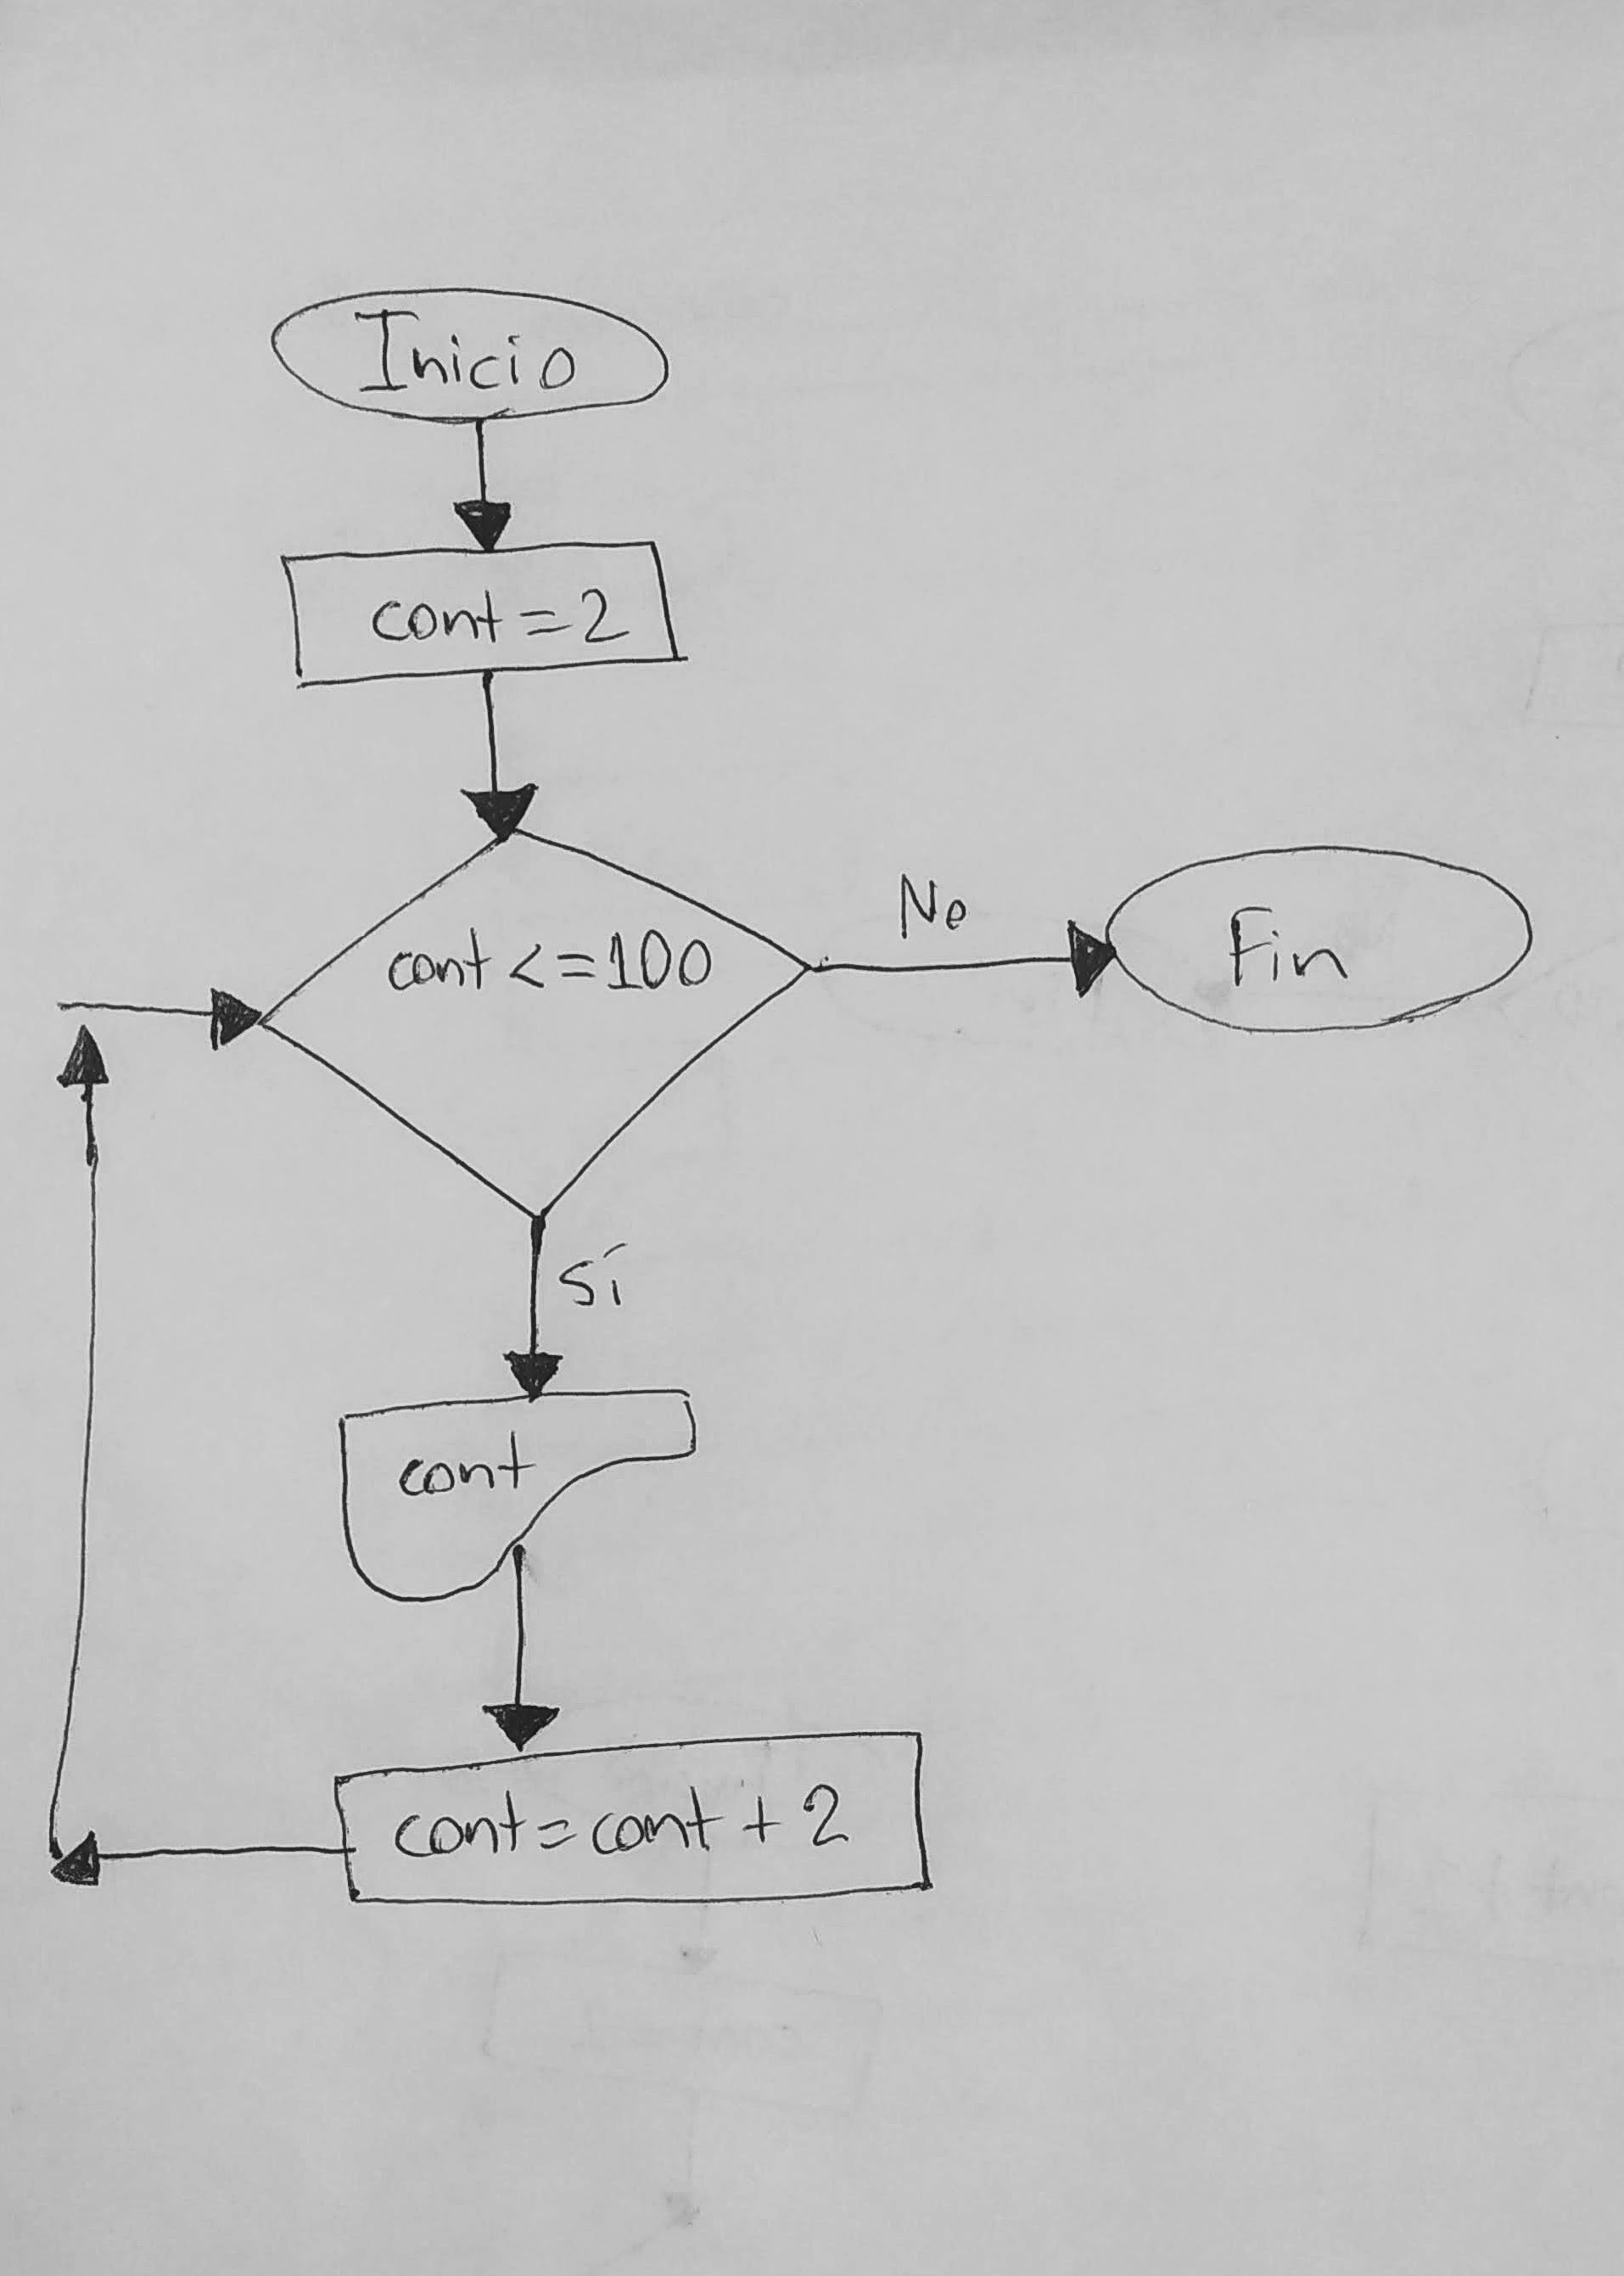 Inicio
cont=2
cont<=100
No
Fin
Sí
cont
cont=cont+2